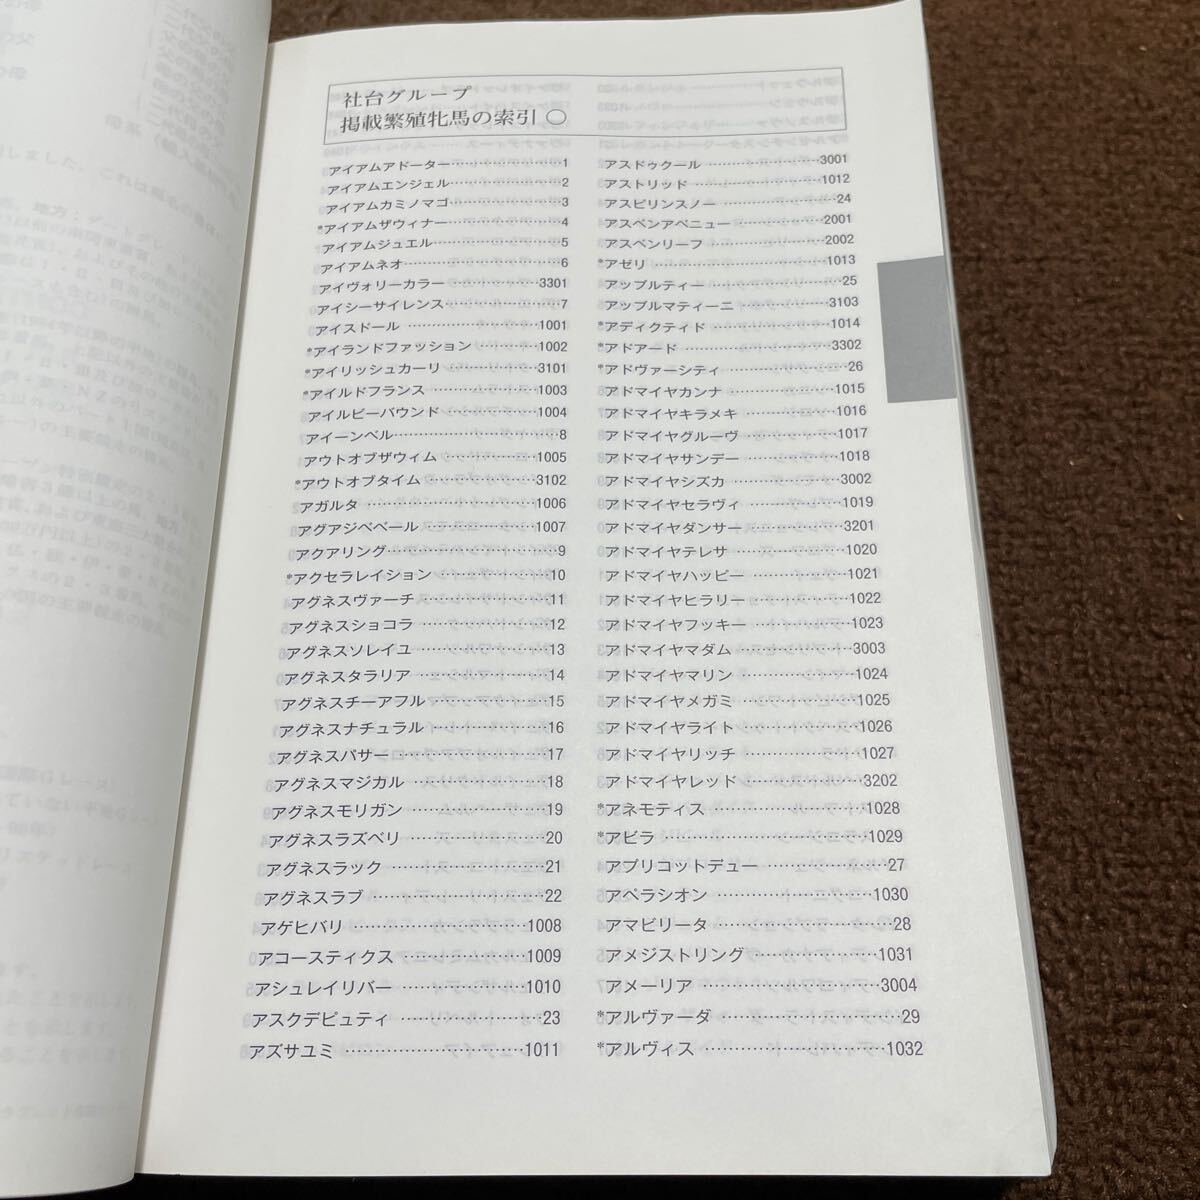 社台グループ
掲載繁殖牝馬の索引 ○
アイアムアドーター……1
アイアムエンジェル……2
アイアムカミノマゴ……3
*アイアムザウィナー……4
アイアムジュエル……5
アイアムネオ……6
アイヴォリーカラー……3301
アイシーサイレンス……7
アイスドール……1001
*アイランドファッション……1002
*アイリッシュカーリ……3101
*アイルドフランス……1003
アイルビーバウンド……1004
アイーンベル……8
アウトオブザウィム……1005
*アウトオブタイム……3102
アガルタ……1006
アグアジベベール……1007
アクアリング……9
*アクセラレイション……10
アグネスヴァーチ……11
アグネスショコラ……12
アグネスソレイユ……13
アグネスタラリア……14
アグネスチーアフル……15
アグネスナチュラル……16
アグネスバサー……17
アグネスマジカル……18
アグネスモリガン……19
アグネスラズベリ……20
アグネスラック……21
アグネスラブ……22
アゲヒバリ……1008
アコースティクス……1009
アシュレイリバー……1010
アスクデピュティ……23
アズサユミ……1011
アスドゥクール……3001
アストリッド……1012
アスピリンスノー……24
アスペンアベニュー……2001
アスペンリーフ……2002
*アゼリ……1013
アップルティー……25
アップルマティーニ……3103
*アディクティド……1014
*アドアード……3302
*アドヴァーシティ……26
アドマイヤカンナ……1015
アドマイヤキラメキ……1016
アドマイヤグルーヴ……1017
アドマイヤサンデー……1018
アドマイヤシズカ……3002
アドマイヤセラヴィ……1019
アドマイヤダンサー……3201
アドマイヤテレサ……1020
アドマイヤハッピー……1021
アドマイヤヒラリー……1022
アドマイヤフッキー……1023
アドマイヤマダム……3003
アドマイヤマリン……1024
アドマイヤメガミ……1025
アドマイヤライト……1026
アドマイヤリッチ……1027
アドマイヤレッド……3202
*アネモティス……1028
*アビラ……1029
アプリコットデュー……27
アペラシオン……1030
アマビリータ……28
アメジストリング……1031
アメーリア……3004
*アルヴァーダ……29
*アルヴィス……1032